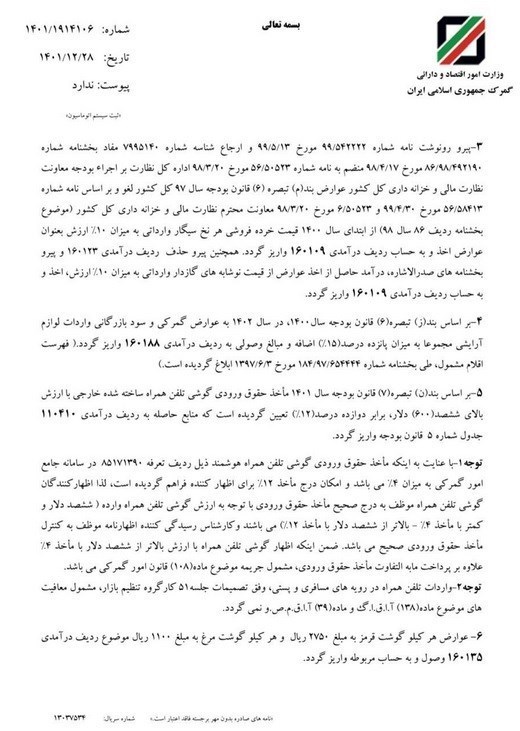 بسمه تعالی
شماره: ۱۴۰۱/۱۹۱۴۱۰۶
تاریخ: ۱۴۰۱/۱۲/۲۸
پیوست: ندارد
«ثبت سیستم اتوماسیون»
وزارت امور اقتصاد و دارائی
گمرک جمهوری اسلامی ایران
۳-پیرو رونوشت نامه شماره ۹۹/۵۴۲۲۲۲ مورخ ۹۹/۵/۱۳ و ارجاع شناسه شماره ۷۹۹۵۱۴۰ مفاد بخشنامه شماره
۸۶/۹۸/۴۹۲۱۹۰ مورخ ۹۸/۴/۱۷ منضم به نامه شماره ۵۶/۵۰۵۲۳ مورخ ۹۸/۳/۲۰ اداره کل نظارت بر اجراء بودجه معاونت
نظارت مالی و خزانه داری کل کشور عوارض بند(م) تبصره (۶) قانون بودجه سال ۹۷ کل کشور لغو و بر اساس نامه شماره
۵۶/۵۸۴۱۳ مورخ ۹۹/۴/۳۰ و ۶/۵۰۵۲۳ مورخ ۹۸/۳/۲۰ معاونت محترم نظارت مالی و خزانه داری کل کشور (موضوع
بخشنامه ردیف ۸۶ سال ۹۸) از ابتدای سال ۱۴۰۰ قیمت خرده فروشی هر نخ سیگار وارداتی به میزان ۱۰٪ ارزش بعنوان
عوارض اخذ و به حساب ردیف درآمدی ۱۶۰۱۰۹ واریز گردد. همچنین پیرو حذف ردیف درآمدی ۱۶۰۱۲۳ و پیرو
بخشنامه های صدرالاشاره، درآمد حاصل از اخذ عوارض از قیمت نوشابه های گازدار وارداتی به میزان ۱۰٪ ارزش، اخذ و
به حساب ردیف درآمدی ۱۶۰۱۰۹ واریز گردد.
۴-بر اساس بند(ز) تبصره(۶) قانون بودجه سال۱۴۰۰، در سال ۱۴۰۲ به عوارض گمرکی و سود بازرگانی واردات لوازم
آرایشی مجموعا به میزان پانزده درصد(۱۵٪) اضافه و مبالغ وصولی به ردیف درآمدی ۱۶۰۱۸۸ واریز گردد.( فهرست
اقلام مشمول، طی بخشنامه شماره ۱۸۴/۹۷/۶۵۴۴۴۴ مورخ ۱۳۹۷/۶/۳ ابلاغ گردیده است.)
۵-بر اساس بند(ن) تبصره(۷) قانون بودجه سال ۱۴۰۱ مأخذ حقوق ورودی گوشی تلفن همراه ساخته شده خارجی با ارزش
بالای ششصد(۶۰۰) دلار، برابر دوازده درصد(۱۲٪) تعیین گردیده است که منابع حاصله به ردیف درآمدی ۱۱۰۴۱۰
جدول شماره ۵ قانون بودجه واریز گردد.
توجه۱-با عنایت به اینکه مأخذ حقوق ورودی گوشی تلفن همراه هوشمند ذیل ردیف تعرفه ۸۵۱۷۱۳۹۰ در سامانه جامع
امور گمرکی به میزان ۴٪ می باشد و امکان درج مأخذ ۱۲٪ برای اظهار کننده فراهم گردیده است، لذا اظهارکنندگان
گوشی تلفن همراه موظف به درج صحیح مأخذ حقوق ورودی با توجه به ارزش گوشی تلفن همراه وارده ( ششصد دلار و
کمتر با مأخذ ۴٪ - بالاتر از ششصد دلار با مأخذ ۱۲٪) می باشند وکارشناس رسیدگی کننده اظهارنامه موظف به کنترل
مأخذ حقوق ورودی صحیح می باشد. ضمن اینکه اظهار گوشی تلفن همراه با ارزش بالاتر از ششصد دلار با مأخذ ۴٪
علاوه بر پرداخت مابه التفاوت مأخذ حقوق ورودی، مشمول جریمه موضوع ماده(۱۰۸) قانون امور گمرکی می باشد.
توجه۲-واردات تلفن همراه در رویه های مسافری و پستی، وفق تصمیمات جلسه۵۱ کارگروه تنظیم بازار، مشمول معافیت
های موضوع ماده(۱۳۸) آ.ا.ق.ا.گ و ماده(۳۹) آ.ا.ق.م.ص.و نمی گردد.
۶- عوارض هر کیلو گوشت قرمز به مبلغ ۲۷۵۰ ریال و هر کیلو گوشت مرغ به مبلغ ۱۱۰۰ ریال موضوع ردیف درآمدی
۱۶۰۱۳۵ وصول و به حساب مربوطه واریز گردد.
«نامه های صادره بدون مهر برجسته فاقد اعتبار است.» شماره سریال: ۱۳۰۳۷۵۳۴